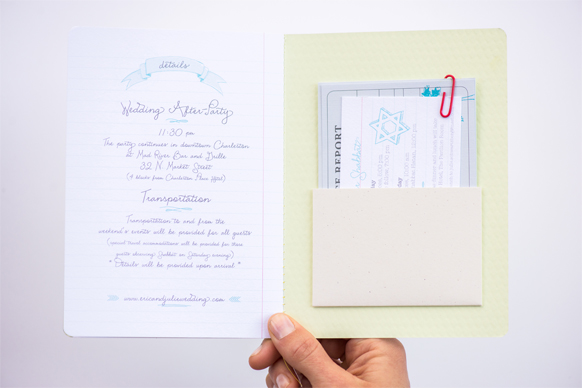 details
Wedding After-Party
11:30 pm
The party continues in downtown Charleston
at Mad River Bar and Grille
32 N. Market Street
(4 blocks from Charleston Place Hotel)
Transportation
Transportation to and from the
weekend's events will be provided for all guests
(special travel accommodations will be provided for those
guests observing Shabbat on Saturday evening)
*Details will be provided upon arrival*
www.ericandjuliewedding.com
REPORT
Shabbat